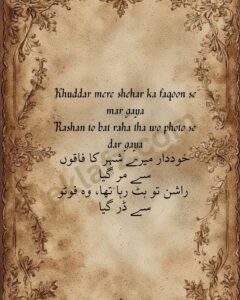 Khuddar mere shehar ka faqoon se
mar gaya
Rashan to bat raha tha wo photo se
dar gaya
خوددار میرے شہر کا فاقوں
سے مر گیا
راشن تو بٹ رہا تھا، وہ فوٹو
سے ڈر گیا